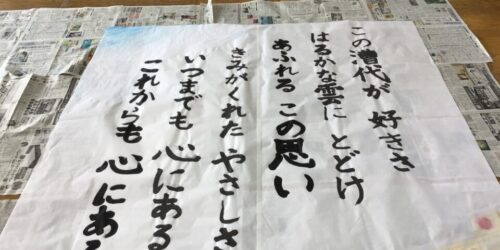 この澹代が 好きさ
はるかな雲に とどけ
あふれる この思い
きみがくれた やさしさ
いつまでも 心にある
これからも 心にある